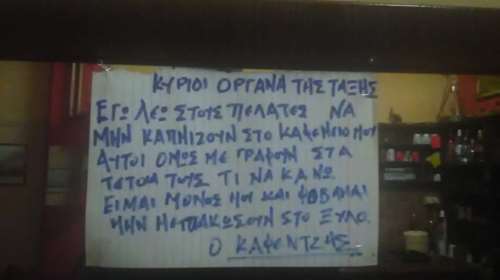 ΚΥΡΙΟΙ ΟΡΓΑΝΑ ΤΗΣ ΤΑΞΗΣ
ΕΓΩ ΛΕΩ ΣΤΟΥΣ ΠΕΛΑΤΕΣ ΝΑ
ΜΗΝ ΚΑΠΝΙΖΟΥΝ ΣΤΟ ΚΑΦΕΝΕΙΟ ΜΟΥ
ΑΥΤΟΙ ΟΜΩΣ ΜΕ ΓΡΑΦΟΥΝ ΣΤΑ
ΤΕΤΟΙΑ ΤΟΥΣ ΤΙ ΝΑ ΚΑΝΩ
ΕΙΜΑΙ ΜΟΝΟΣ ΜΟΥ ΚΑΙ ΦΟΒΑΜΑΙ
ΜΗΝ ΜΕ ΠΛΑΚΩΣΟΥΝ ΣΤΟ ΞΥΛΟ.
Ο ΚΑΦΕΝΤΖΗΣ